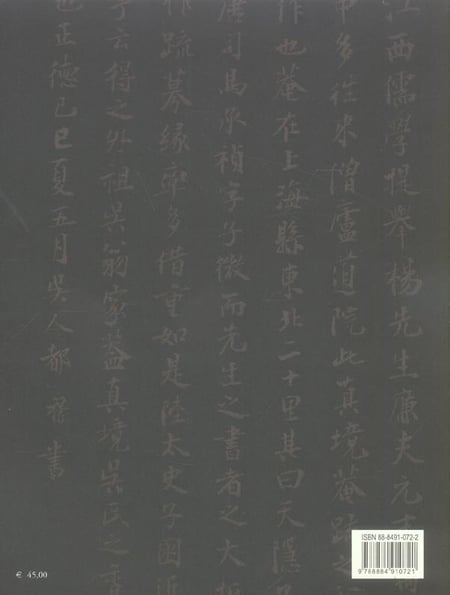 江西儒學提舉楊先生廉夫元
中多往来僧廬道院此真境菴疏之
作也菴在上海縣東北二十里其曰天隱
唐司馬承禎字子微而先生之書者之大
作疏募緣率多借重如是陸太史子囦近
予云得之外祖吳翁家蓋真境吳氏之
也正德己巳夏五月吳人都穆書
ISBN 88-8491-072-2
9 788884 910721
€ 45,00